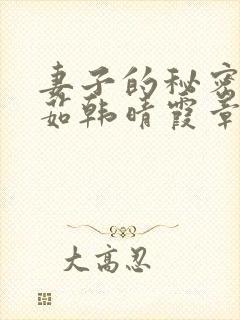 妻子的秘密
茹韩晴霞章
大高忍